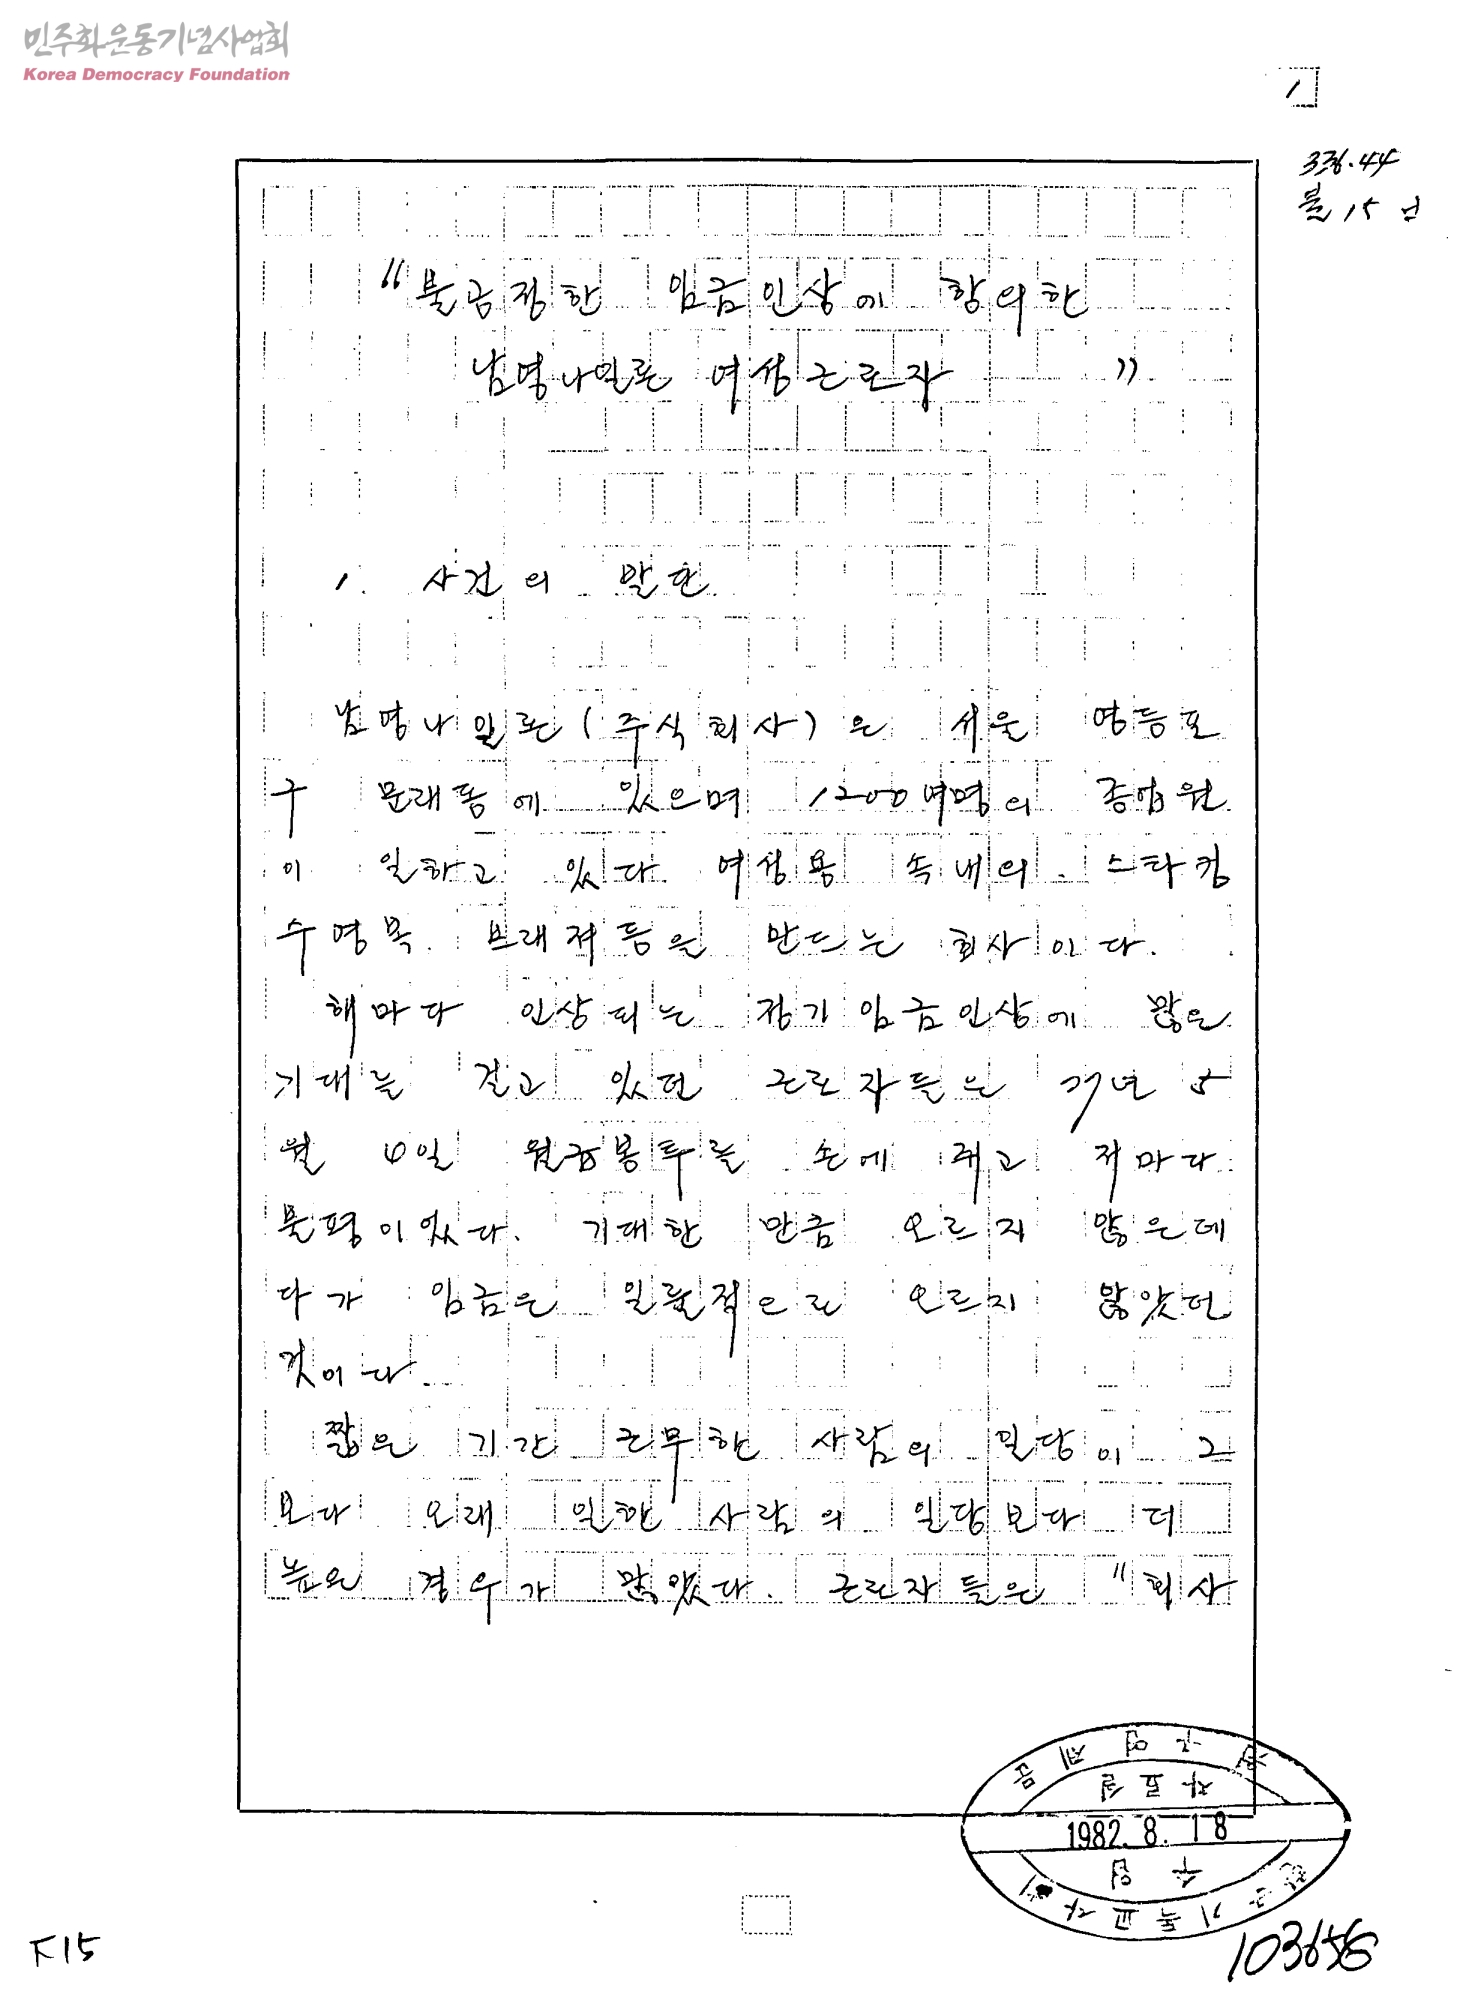 민주화운동기념사업회
Korea Democracy Foundation
1
336.44
불 15 ㄴ
“불공정한 임금인상에 항의한
남영나일론 여성근로자 ”
1. 사건의 발단
남영나일론(주식회사)은 서울 영등포
구 문래동에 있으며 1200여명의 종업원
이 일하고 있다 여성용 속내의. 스타킹
수영복. 브래져등을 만드는 회사이다.
해마다 인상되는 정기임금인상에 많은
기대를 걸고 있던 근로자들은 77년 5
월 10일 월급봉투를 손에 쥐고 저마다
불평이었다. 기대한 만큼 오르지 않은데
다가 임금은 일률적으로 오르지 않았던
것이다.
짧은 기간 근무한 사람의 일당이 그
보다 오래 일한 사람의 일당보다 더
높은 경우가 많았다. 근로자들은 “회사
문제연구원
자료실
1982. 8. 18
수입
한국기독교사회
ㅈ15
103656